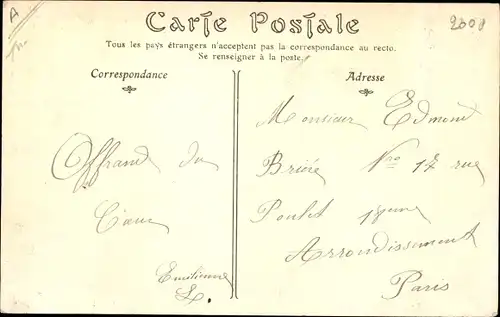 A
2000
Carte Postale
Tous les pays étrangers n'acceptent pas la correspondance au recto.
Se renseigner à la poste.
Correspondance
Adresse
Offrande du
Cœur
Emilienne
L.
Monsieur Edmond
Briére Nro 17 rue
Poulet 18eme
Arrondissement
Paris